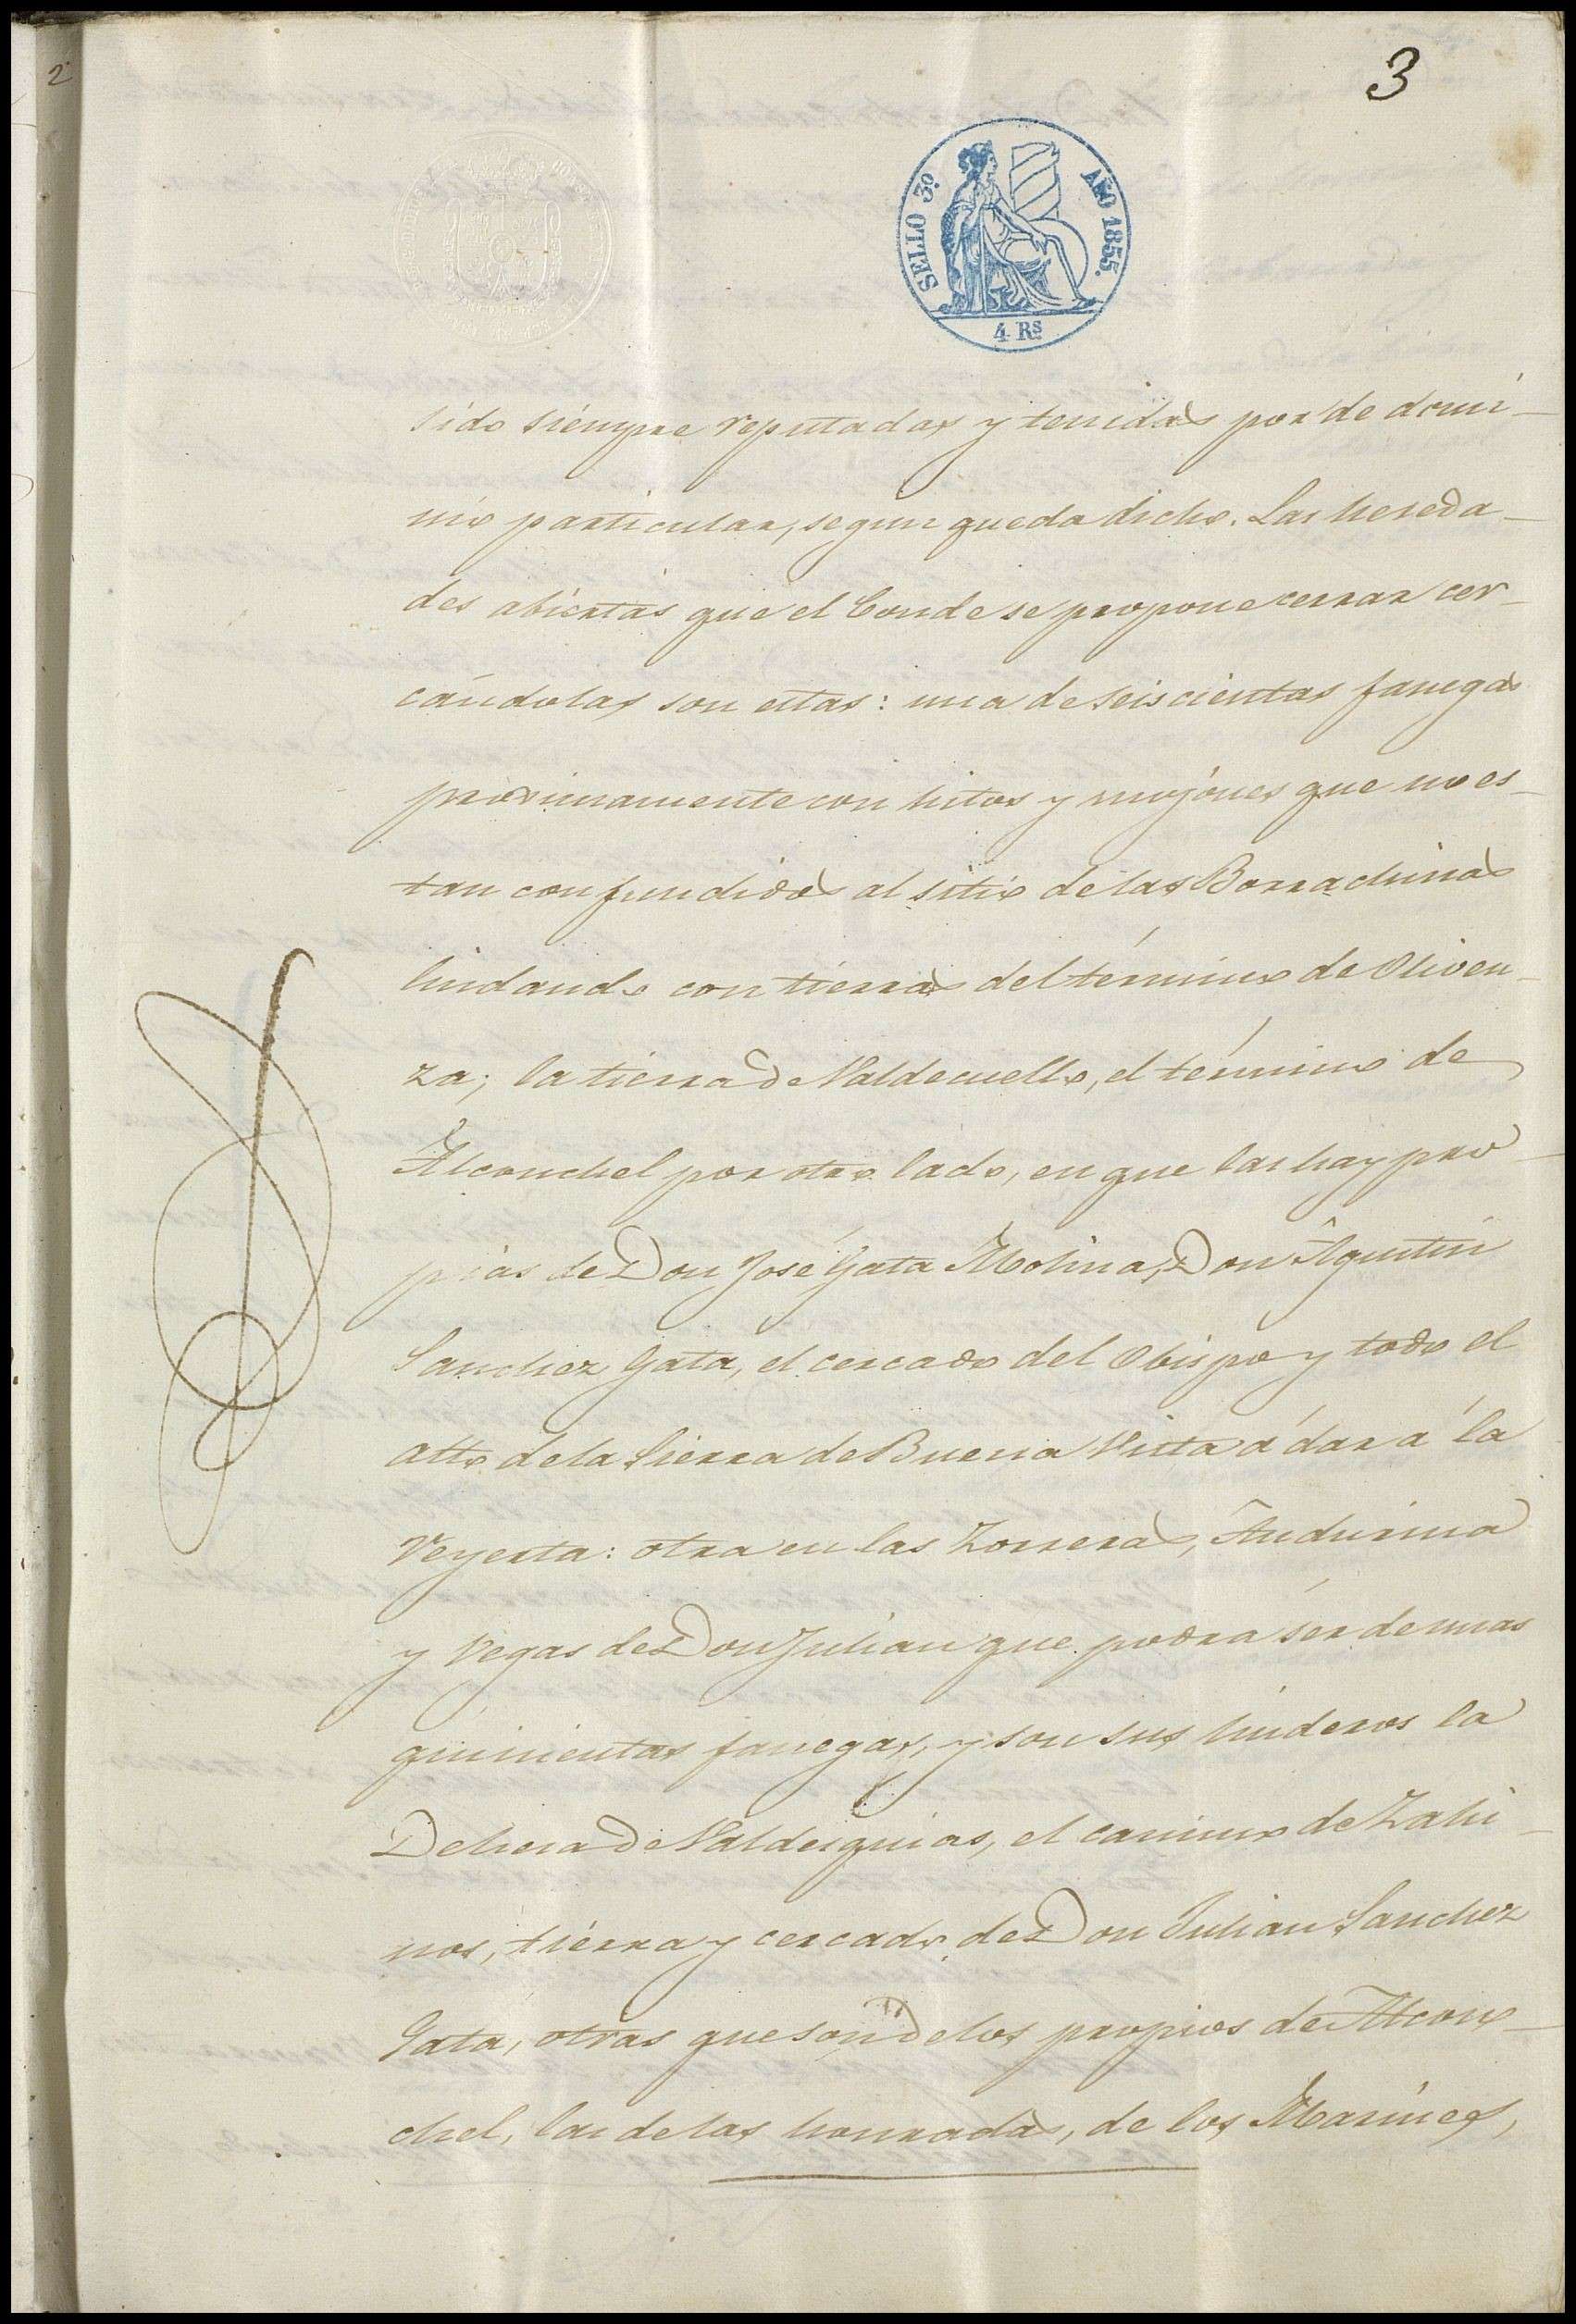 2
3
SELLO 3º AÑO 1855.
4 Rs
sido siempre reputadas y tenidas por de domi-
nio particular, segun queda dicho. Las hereda-
des abiertas que el Conde se propone cerrar cer-
cándolas son estas: una de seiscientas fanegas
proximamente con hitos y mojónes que no es-
tan confundidos al sitio de las Borrachinas
lindando con tierras del término de Oliven-
za; la tierra de Valdecuello, el término de
Alconchel por otro lado, en que las hay pro-
pias de Don José Gata Molina, Don Agustin
Sanchez Gata, el cercado del Obispo y todo el
alto de la Sierra de Buena Vista á dar á la
Veyerta: otra en las Zorreras,
y Vegas de Don Julian que podrá ser de unas
quinientas fanegas, y son sus linderos la
Dehesa de el camino de Zahi-
nos, tierra y cercado de Don Julian Sanchez
Gata, otras que son de los propios de Alcon-
chel, las de las honradas, de los Marines,